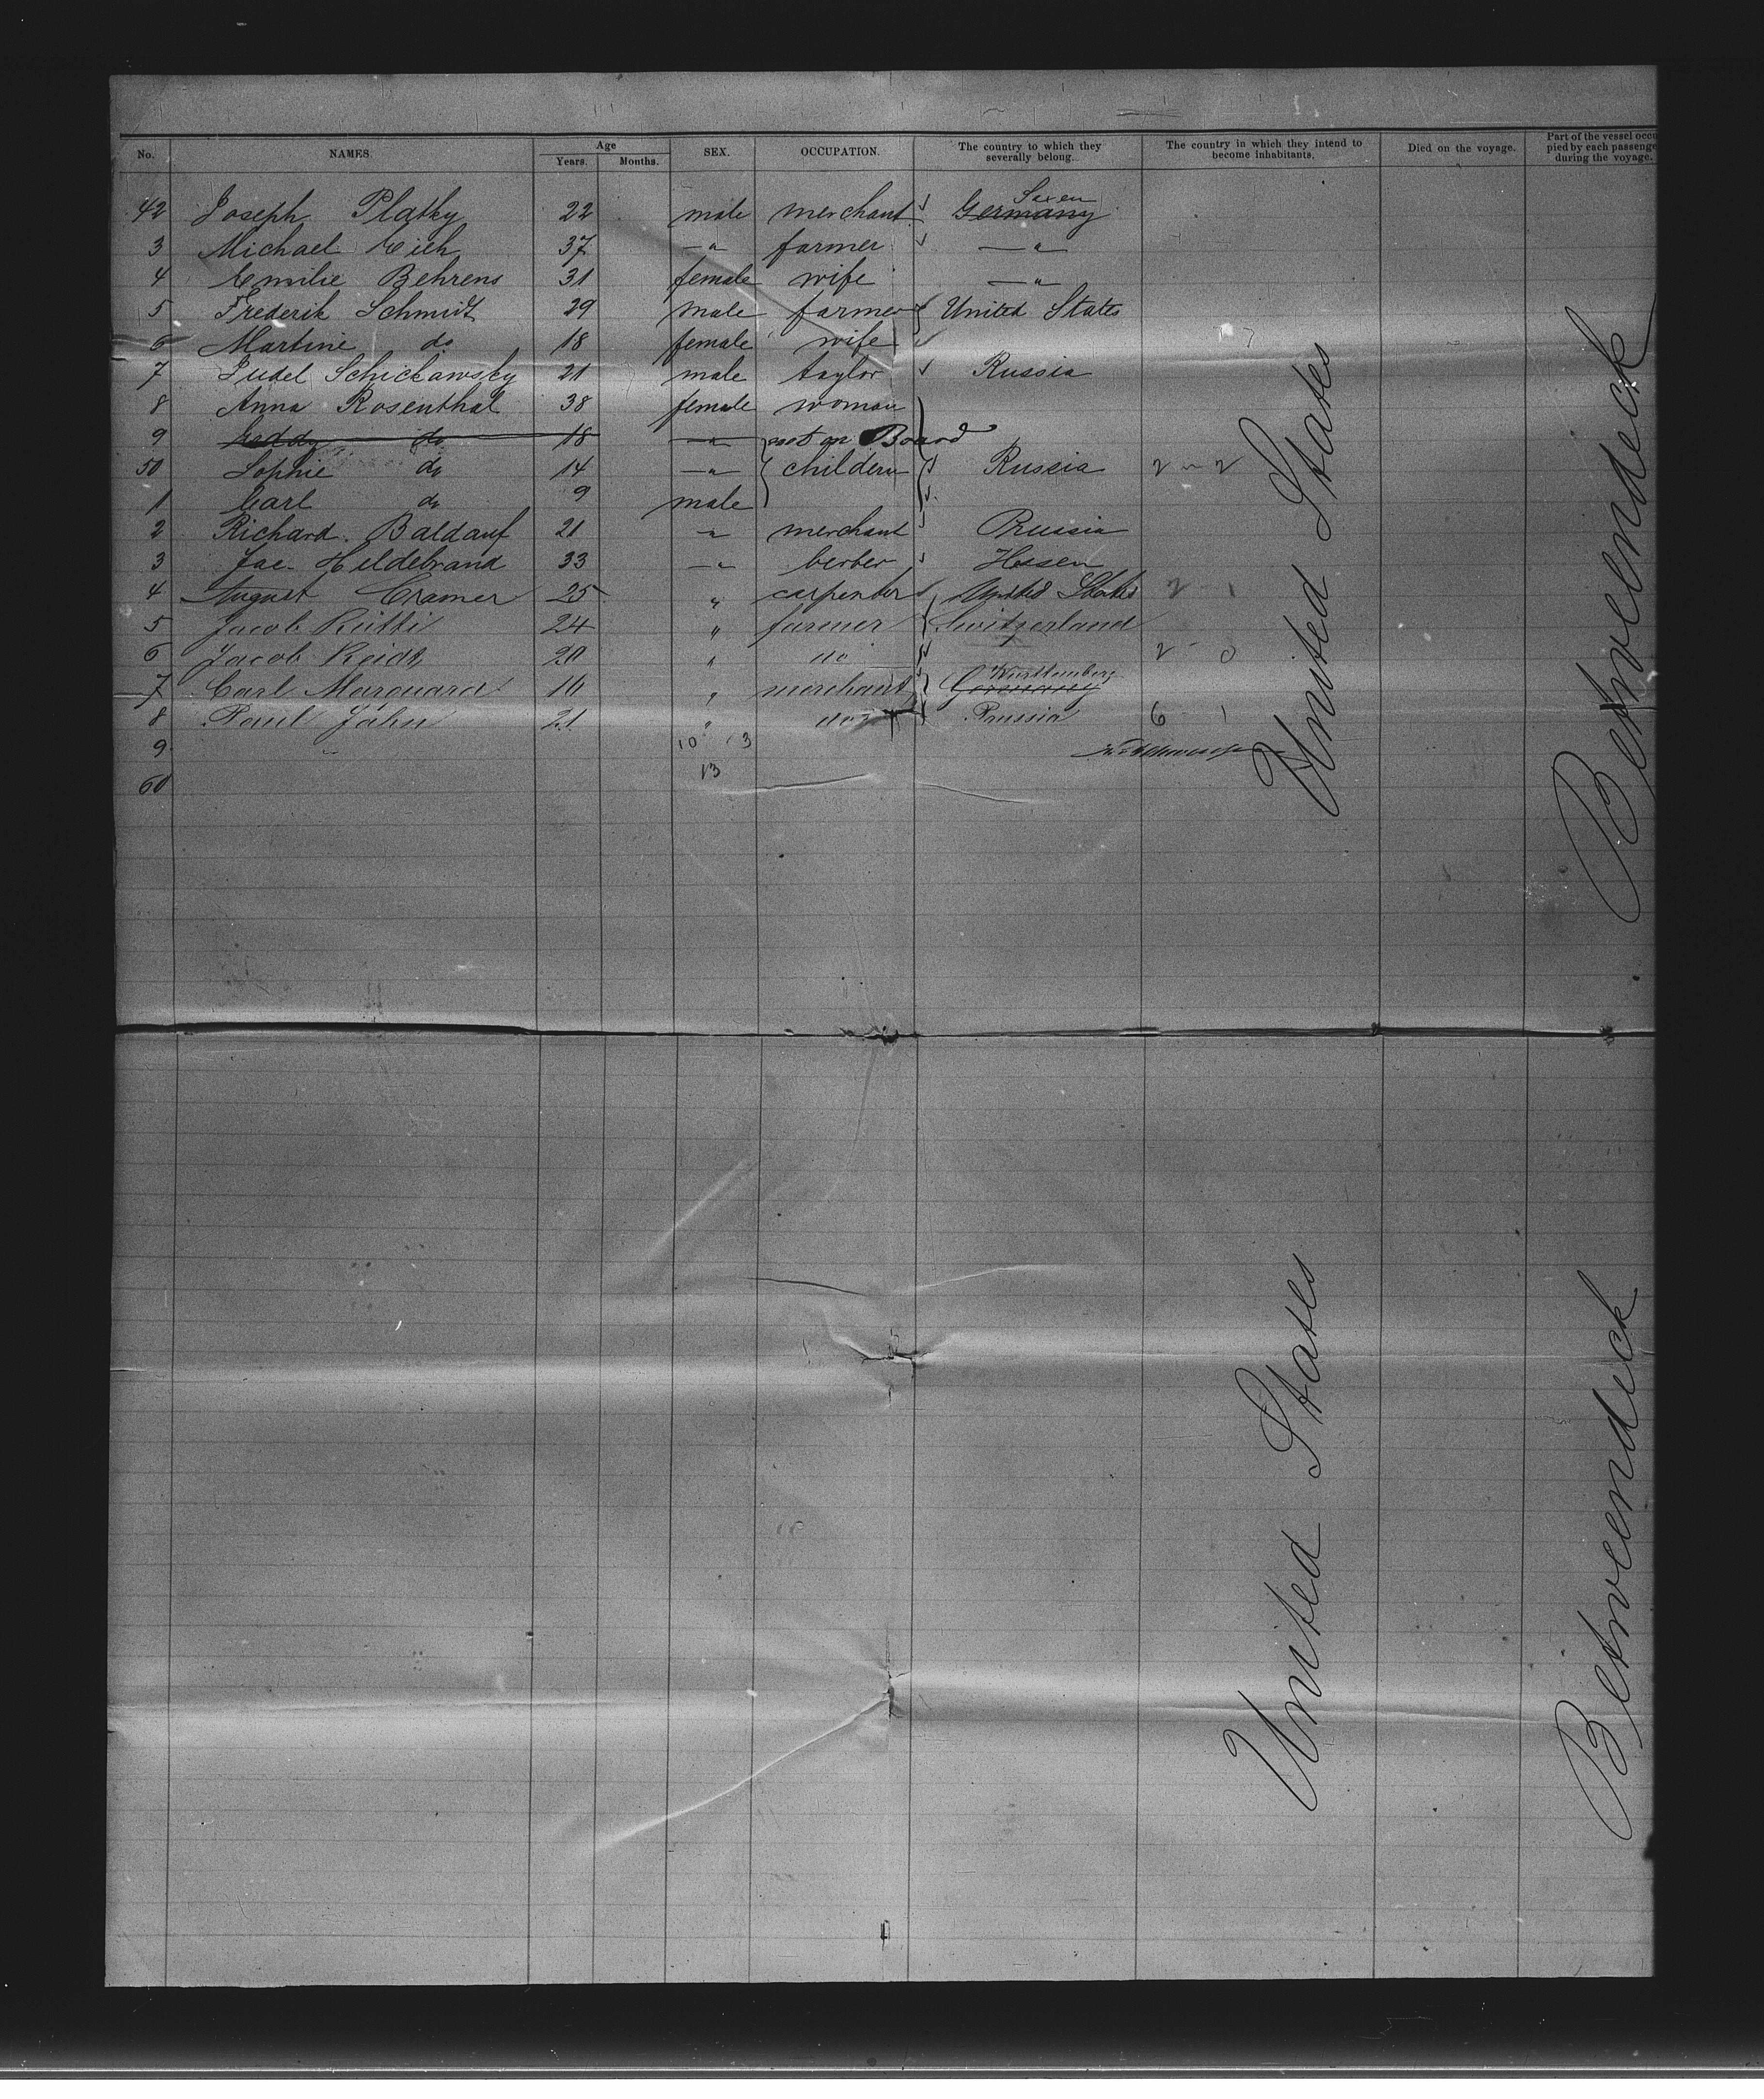 No. NAMES. Age Years. Months. SEX. OCCUPATION. The country to which they severally belong. The country in which they intend to become inhabitants. Died on the voyage. Part of the vessel occu pied by each passenge during the voyage.
Saxen
42 Joseph Platky 22 male merchant Germany
3 Michael Eich 37 —" farmer —"
4 Emilie Behrens 31 female wife —"
5 Frederik Schmidt 29 male farmer United States
6 Martine do 18 female wife
7 Judel Schickawsky 21 male taylor Russia
8 Anna Rosenthal 38 female woman
9 do 18 —" not on Board
50 Sophie do 14 —" childern Russia 2 - 2
1 Carl do 9 male
2 Richard Baldauf 21 —" merchant Prussia
3 Jac. Heldebrand 33 —" berber Hessen
4 August Cramer 25 " carpenter United States 2 - 1
5 Jacob Rütti 24 " farmer Switzerland
6 Jacob 20 " do 2 - 0
Württemberg
7 Carl Marquard 16 " merchant Germany
8 Paul Jahn 21 " do Prussia 6 1
9 10 13
60 13
United States
Betweendeck
United States
Betweendeck